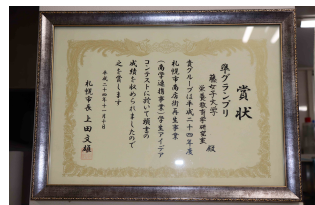 賞状
準グランプリ
藤女子大学
栄養教育学研究室 殿
貴グループは平成二十四年度
札幌市商店街再生事業
(商学連携事業)学生アイデア
コンテストに於いて頭書の
成績を収められましたので
之を賞します
平成二十四年十一月十日
札幌市長 上田文雄